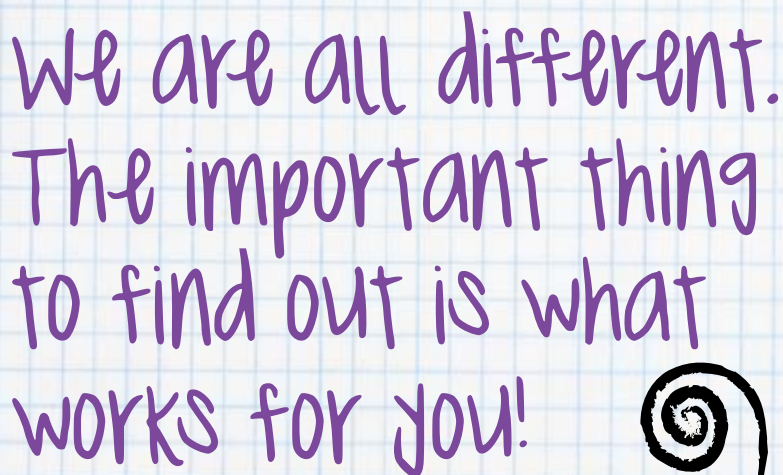 We are all different.
The important thing
to find out is what
works for you!